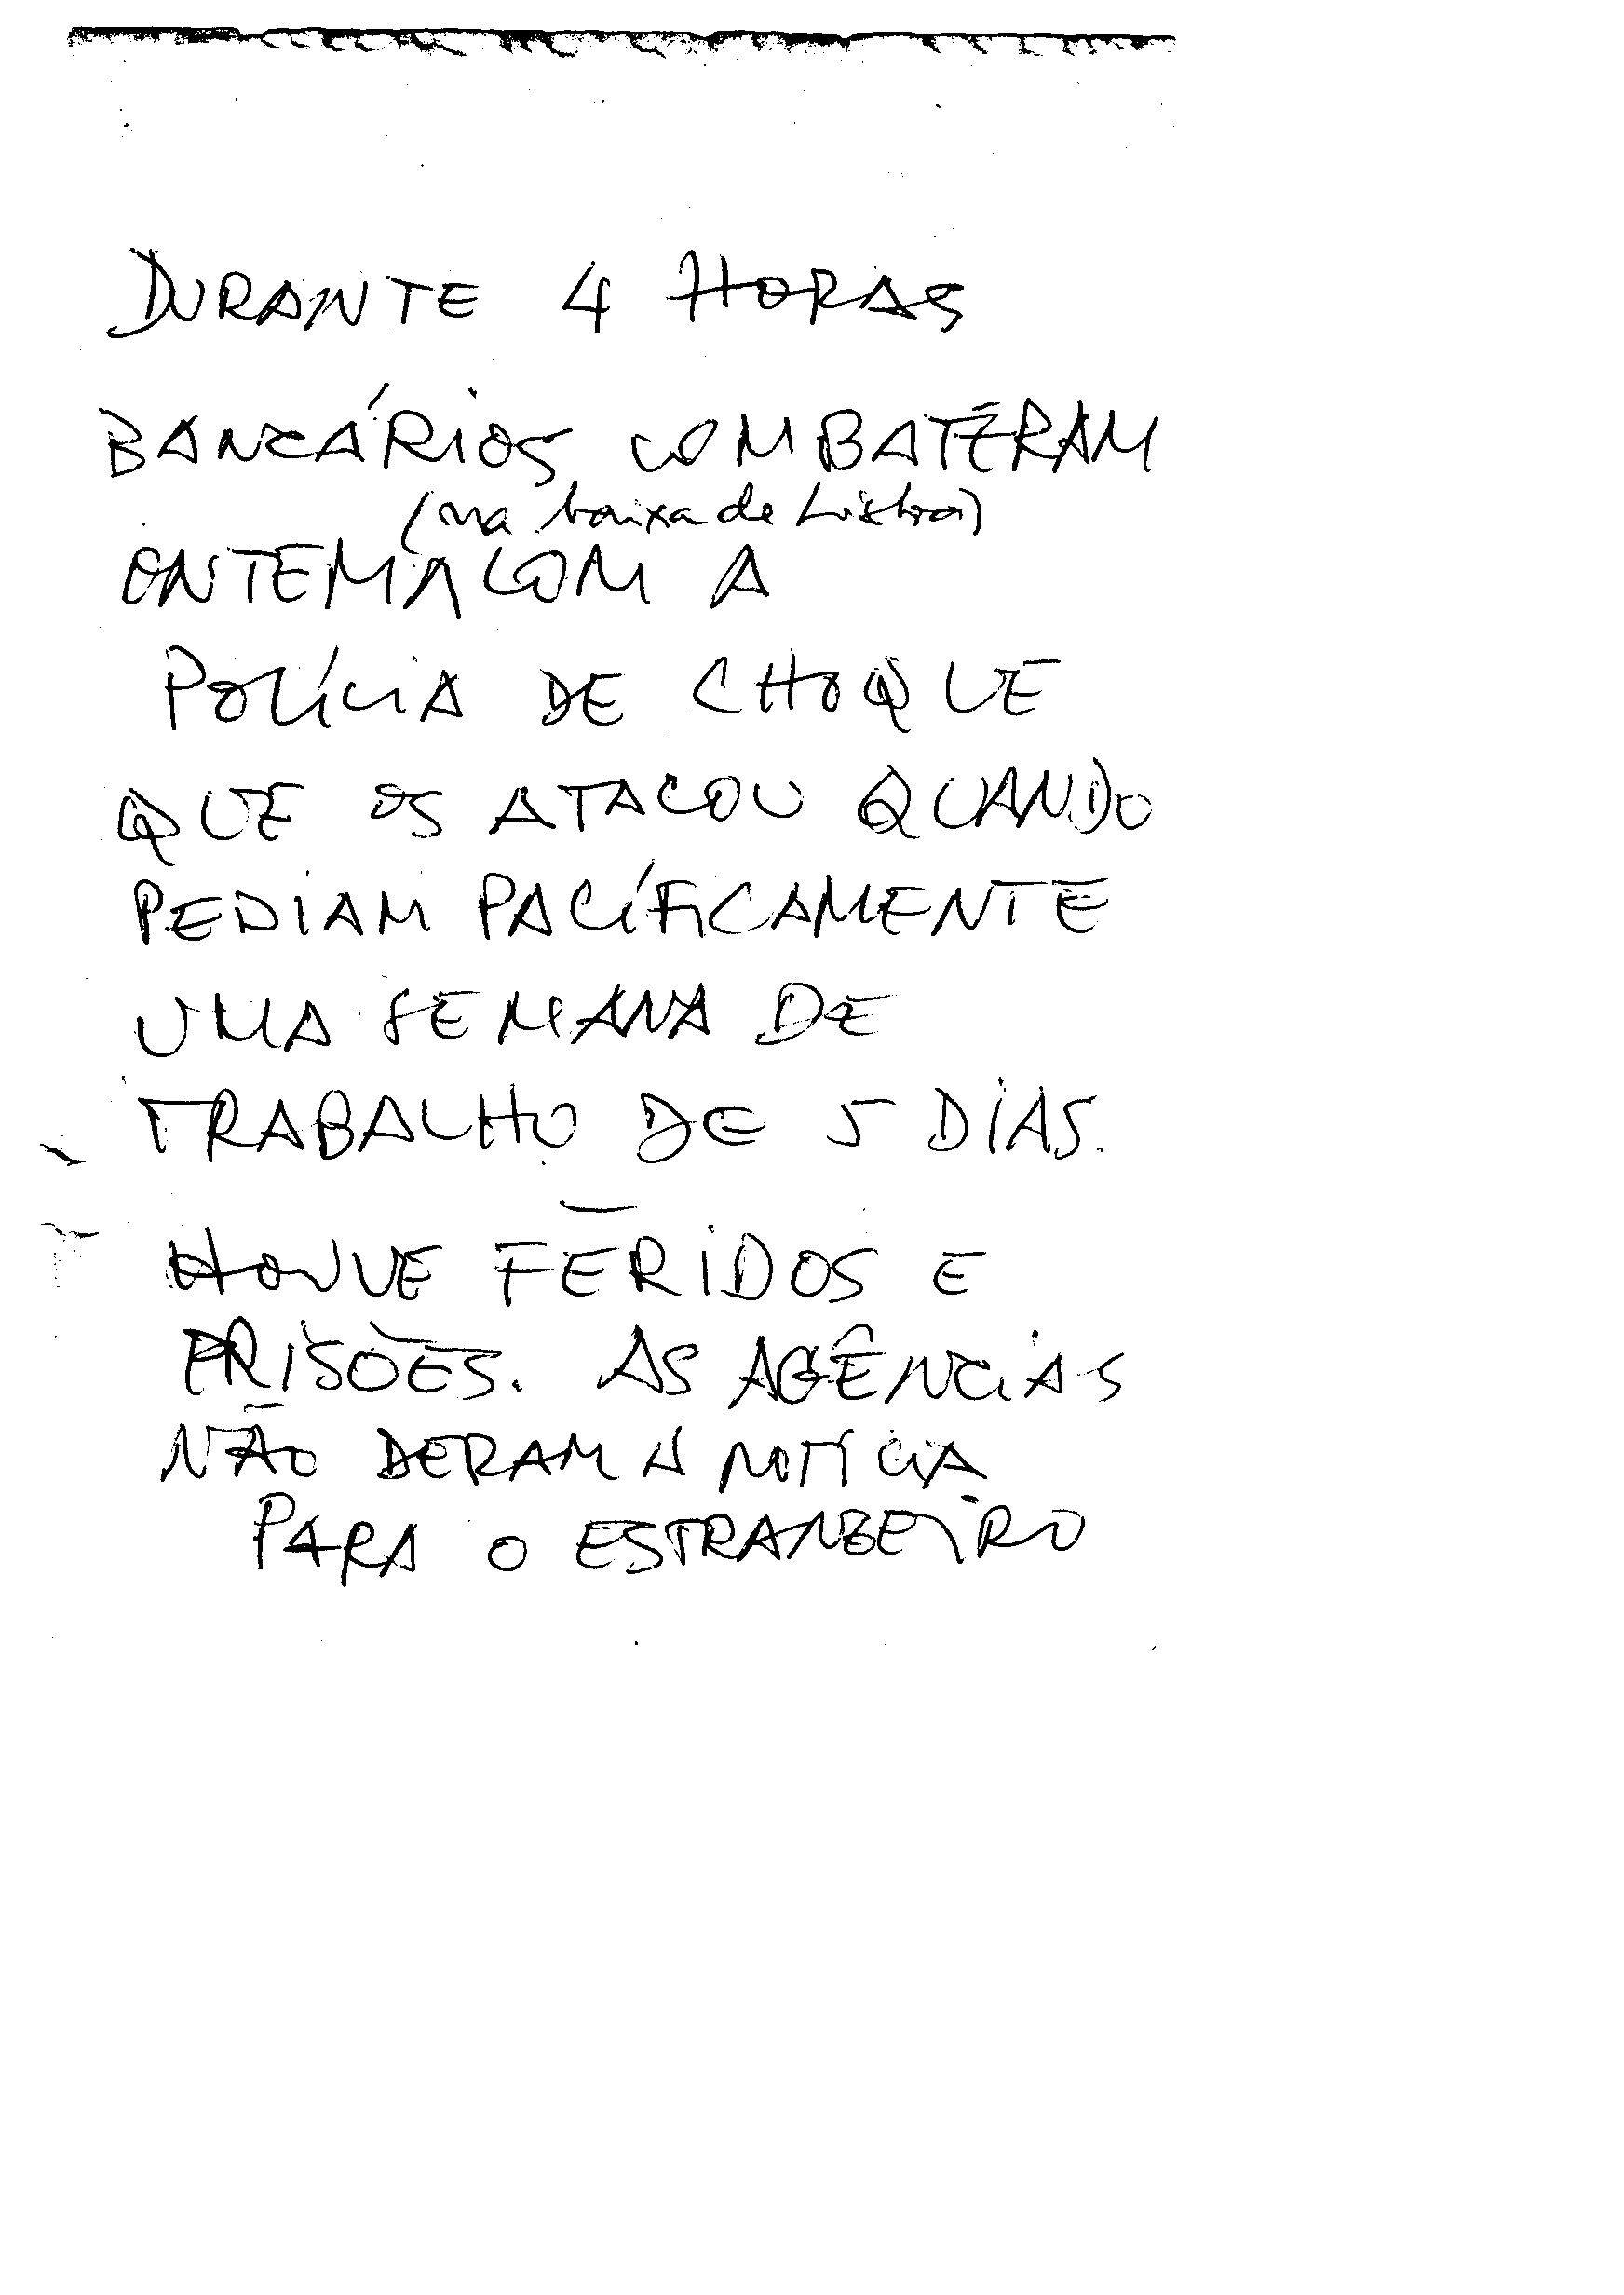 DURANTE 4 HORAS
BANCÁRIOS COMBATERAM
(na baixa de Lisboa)
ONTEM COM A
POLÍCIA DE CHOQUE
QUE OS ATACOU QUANDO
PEDIAM PACÍFICAMENTE
UMA SEMANA DE
TRABALHO DE 5 DIAS.
HOUVE FERIDOS E
PRISÕES. AS AGÊNCIAS
NÃO DERAM A NOTÍCIA
PARA O ESTRANGEIRO